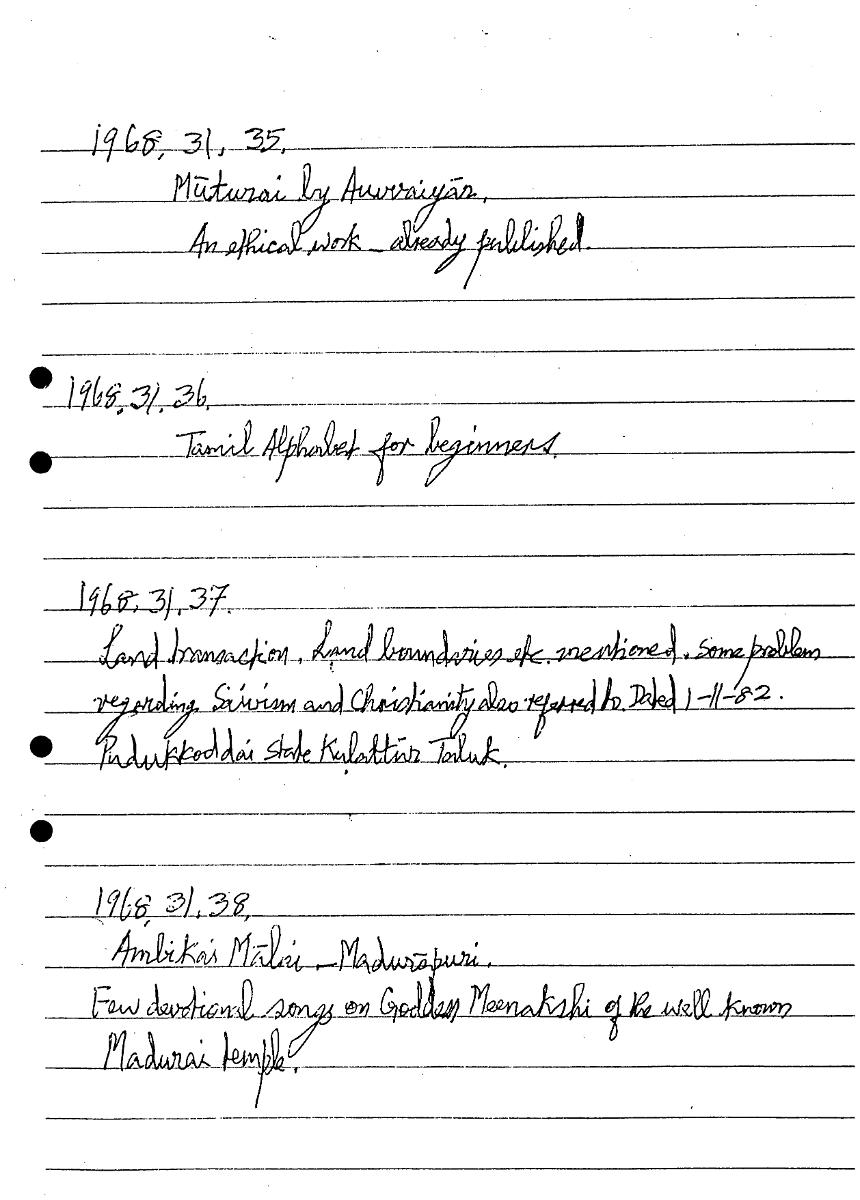 1968, 31, 35.
Mūturai by Auvvaiyār.
An ethical work - already published.
1968. 31. 36.
Tamil Alphabet for beginners.
1968. 31. 37.
Land transaction. Land boundaries etc. mentioned. Some problem
regarding Saivism and Christianity also referred to. Dated 1-11-82.
Pudukkoddai state Kulattūr Taluk.
1968. 31. 38.
Ambikai Mālai - Madurāpuri.
Few devotional songs on Goddess Meenakshi of the well known
Madurai temple.